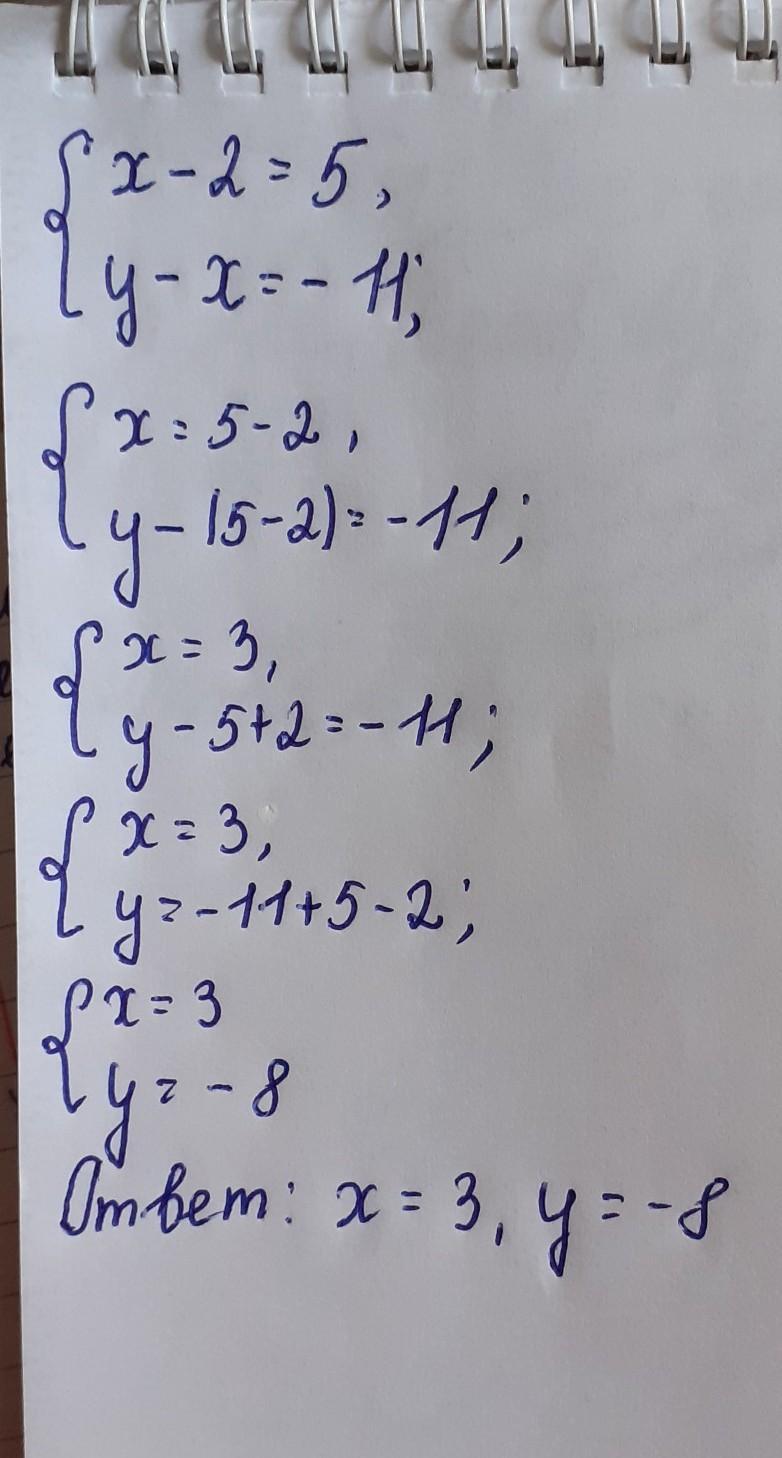 x - 2 = 5,
y - x = - 11;
x = 5 - 2,
y - (5 - 2) = - 11;
x = 3,
y - 5 + 2 = - 11;
x = 3,
y = - 11 + 5 - 2;
x = 3
y = - 8
Ответ: x = 3, y = - 8